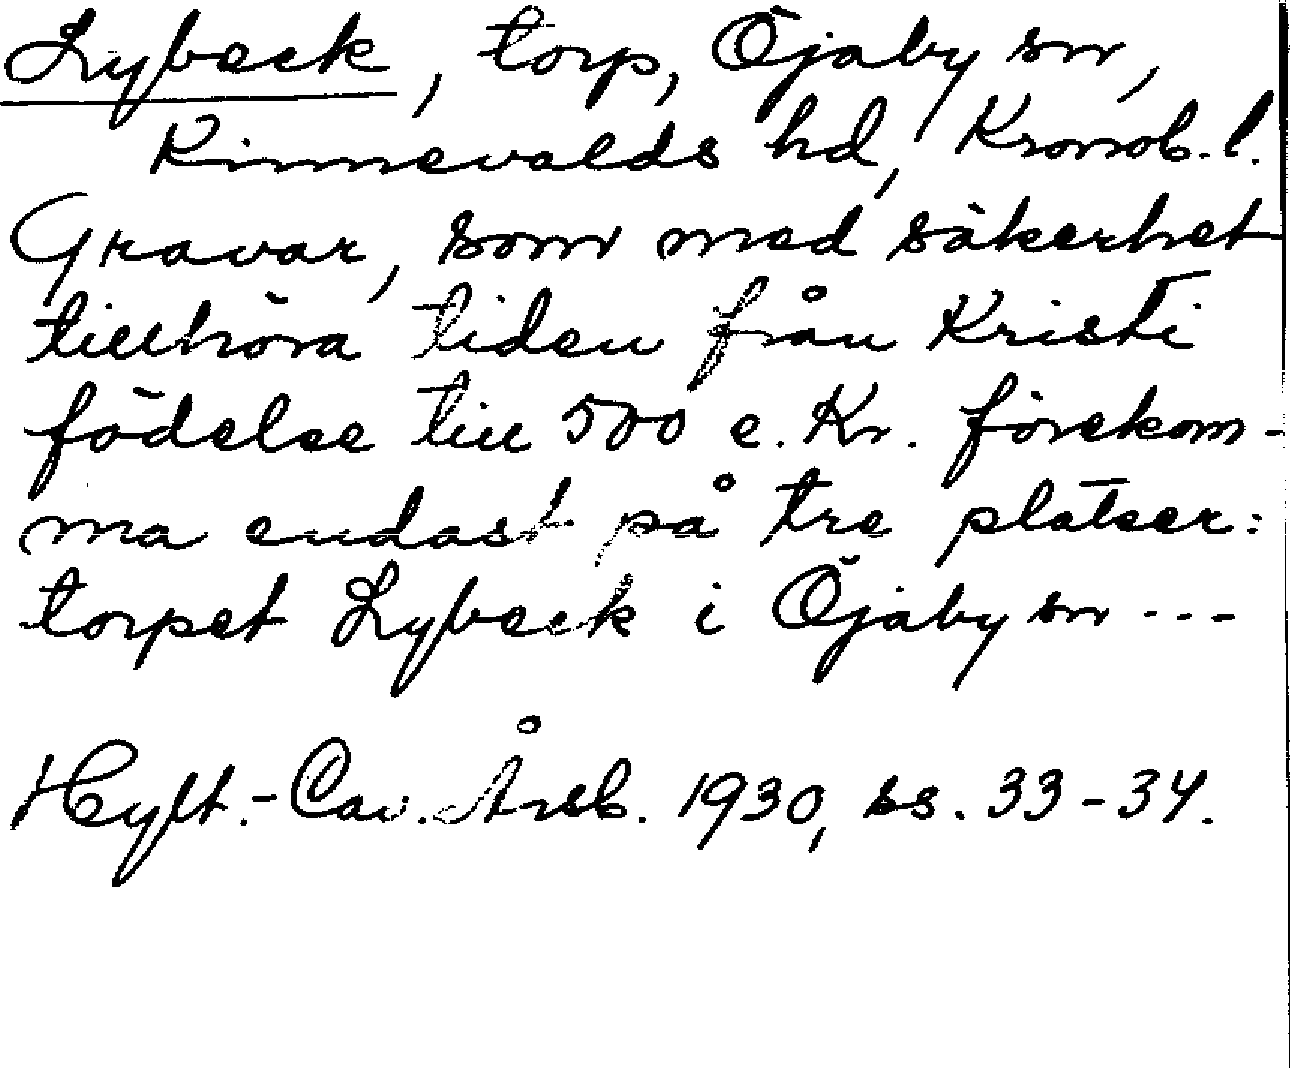 Lybeck, torp, Öjaby sn,
Kinnevalds hd, Kronob. l.
Gravar, som med säkerhet
tillhöra tiden från Kristi
födelse till 500 e. Kr. förekom-
ma endast på tre platser:
torpet Lybeck i Öjaby sn ---
Hylt.-Cav. Årsb. 1930, ss. 33-34.